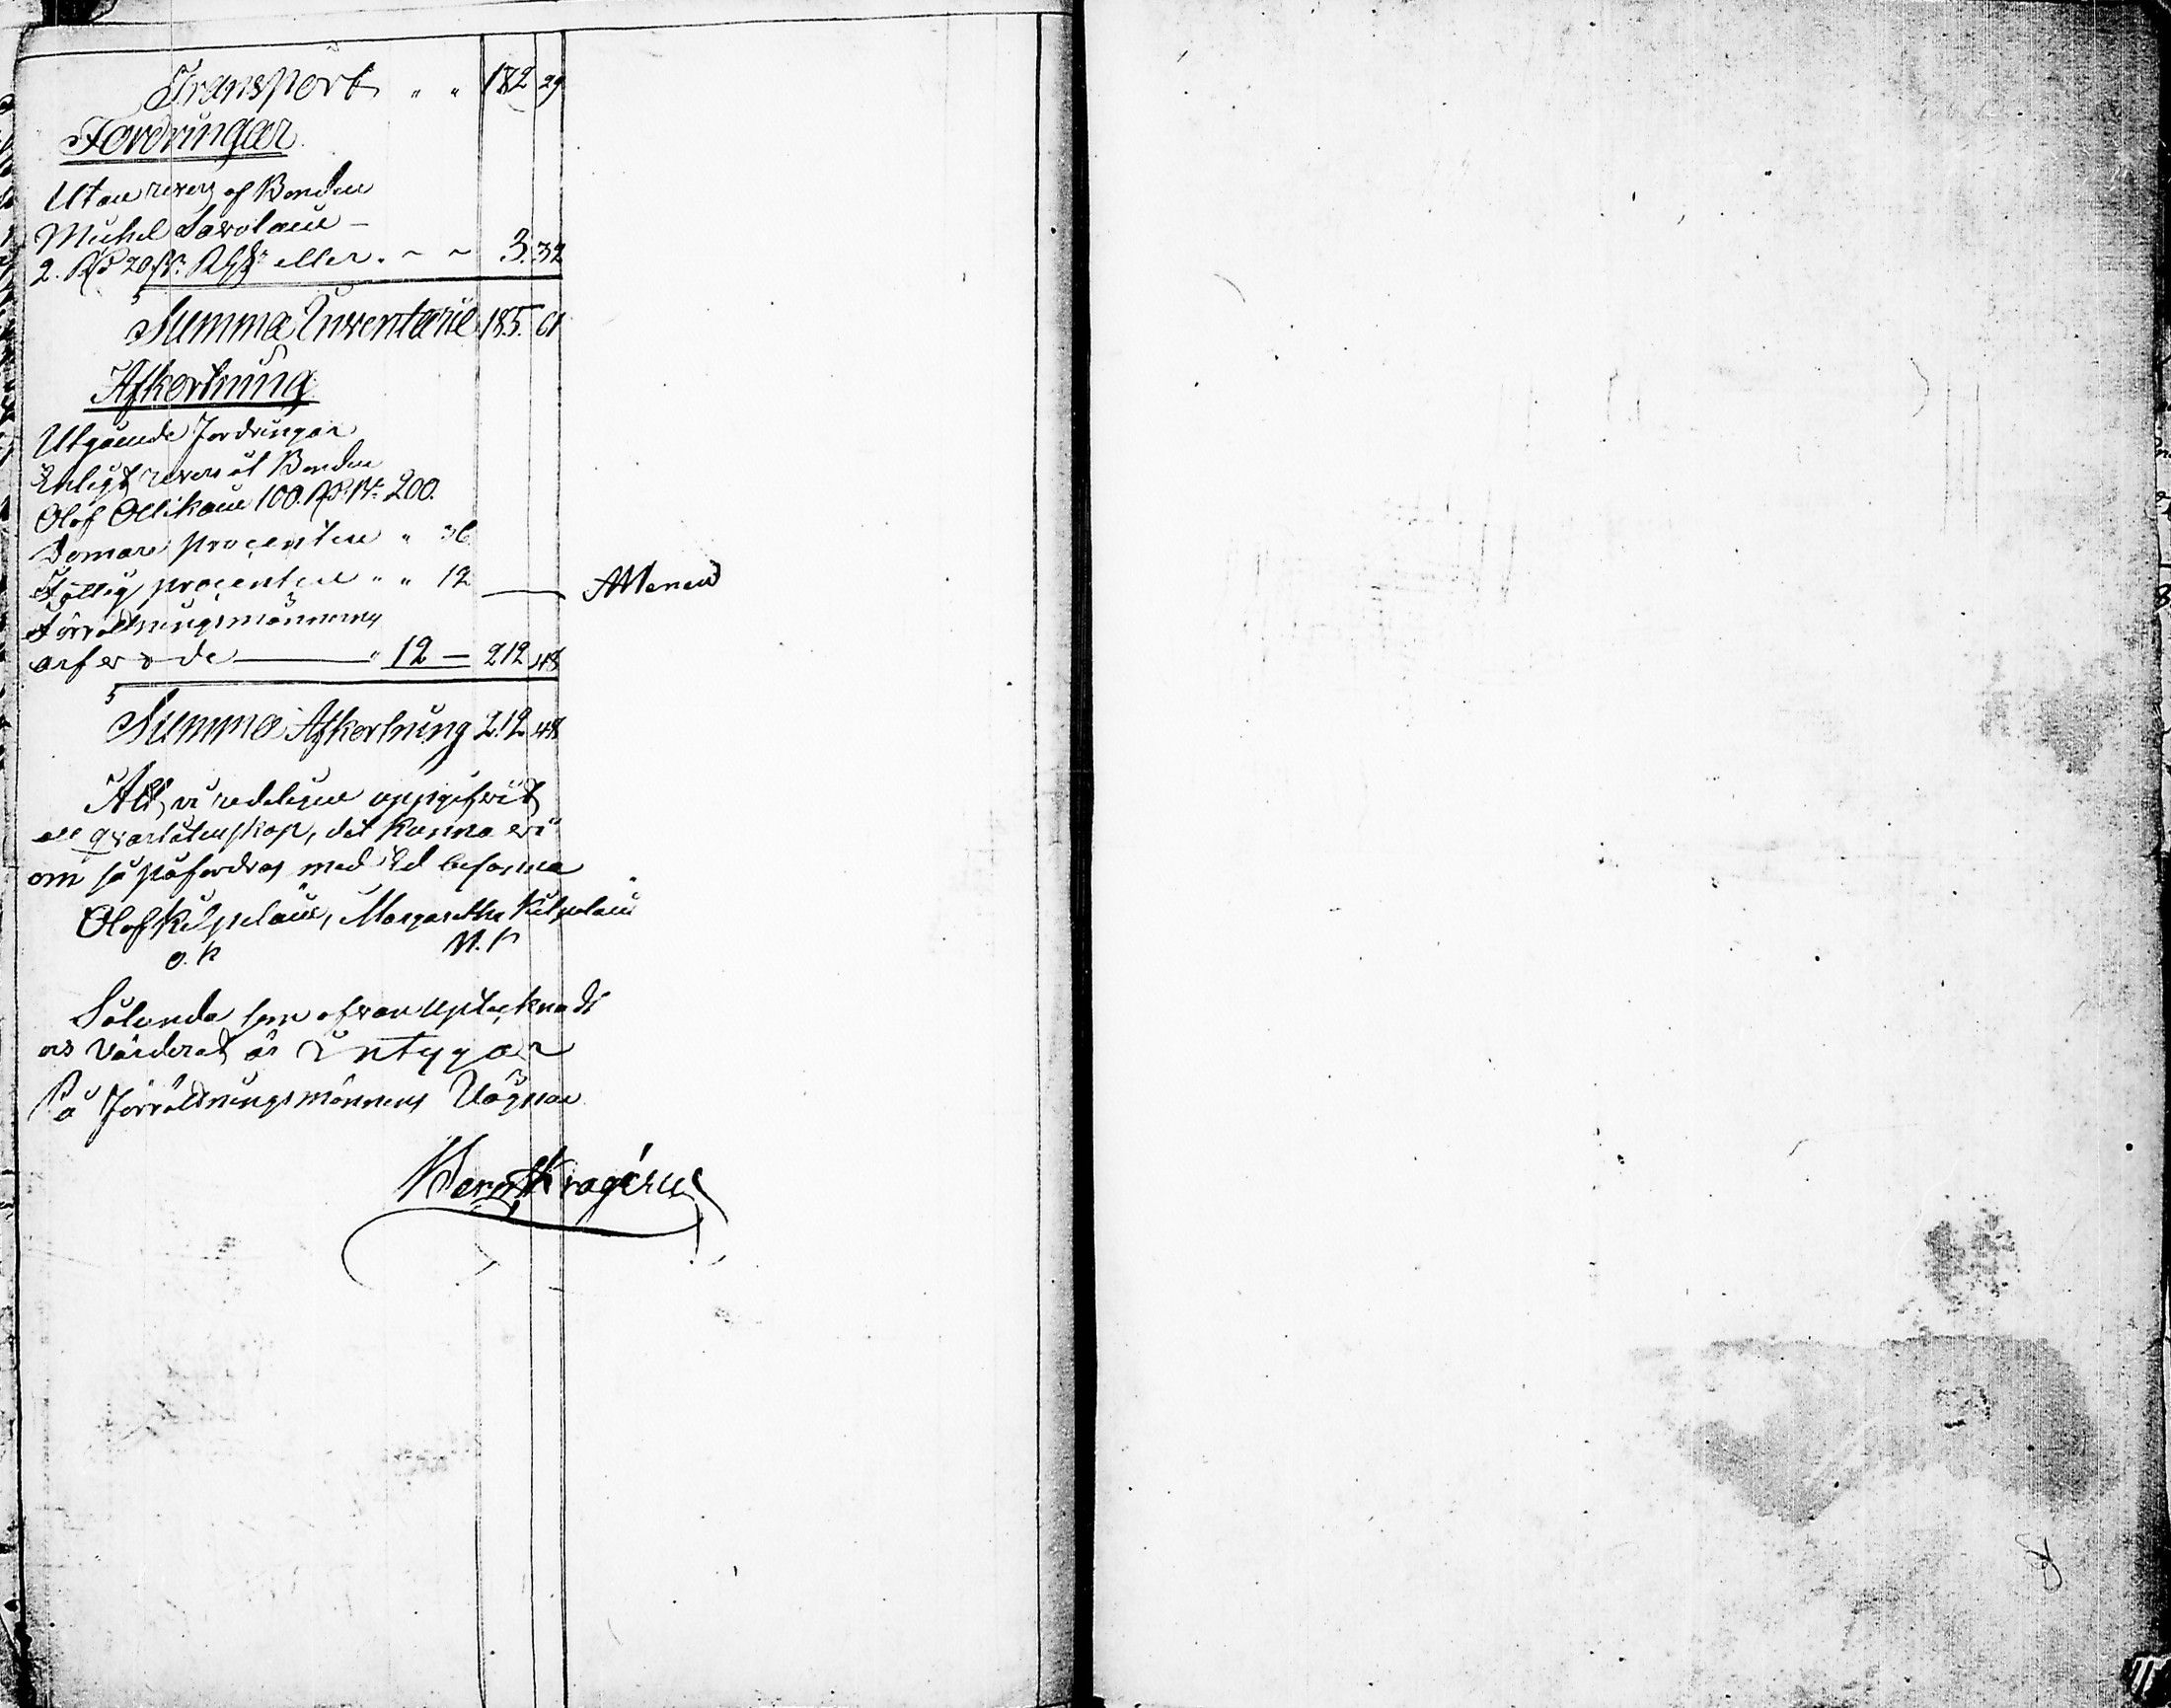 Transport " " 182 29
Fordringar
Utan revers af Bonden
Michel Savolain –
eller . ~ ~ 3. 32
Summa Inventarie 185. 61
Afkortning
Utgående Fordringar
Enligt revers åt Bonden
Olof Ollikain 100. 200.
Domare procenten " 36
Fattig procenten " " 12
Förrättningsmännens
arfvode " 12 — 212 48
Summa Afkortning 212 48
Att vi redeligen uppgifvit
all qvarlåtenskap, det kunna vi
om så påfordras med Ed besanna
Olof Kilpelain, Margaretha Kilpelain
O. K M. K
Sålunda som ofvan Uptecknadt
ock Värderat är Intygar
På Förrättningsmännens Vägnar
Krogérus